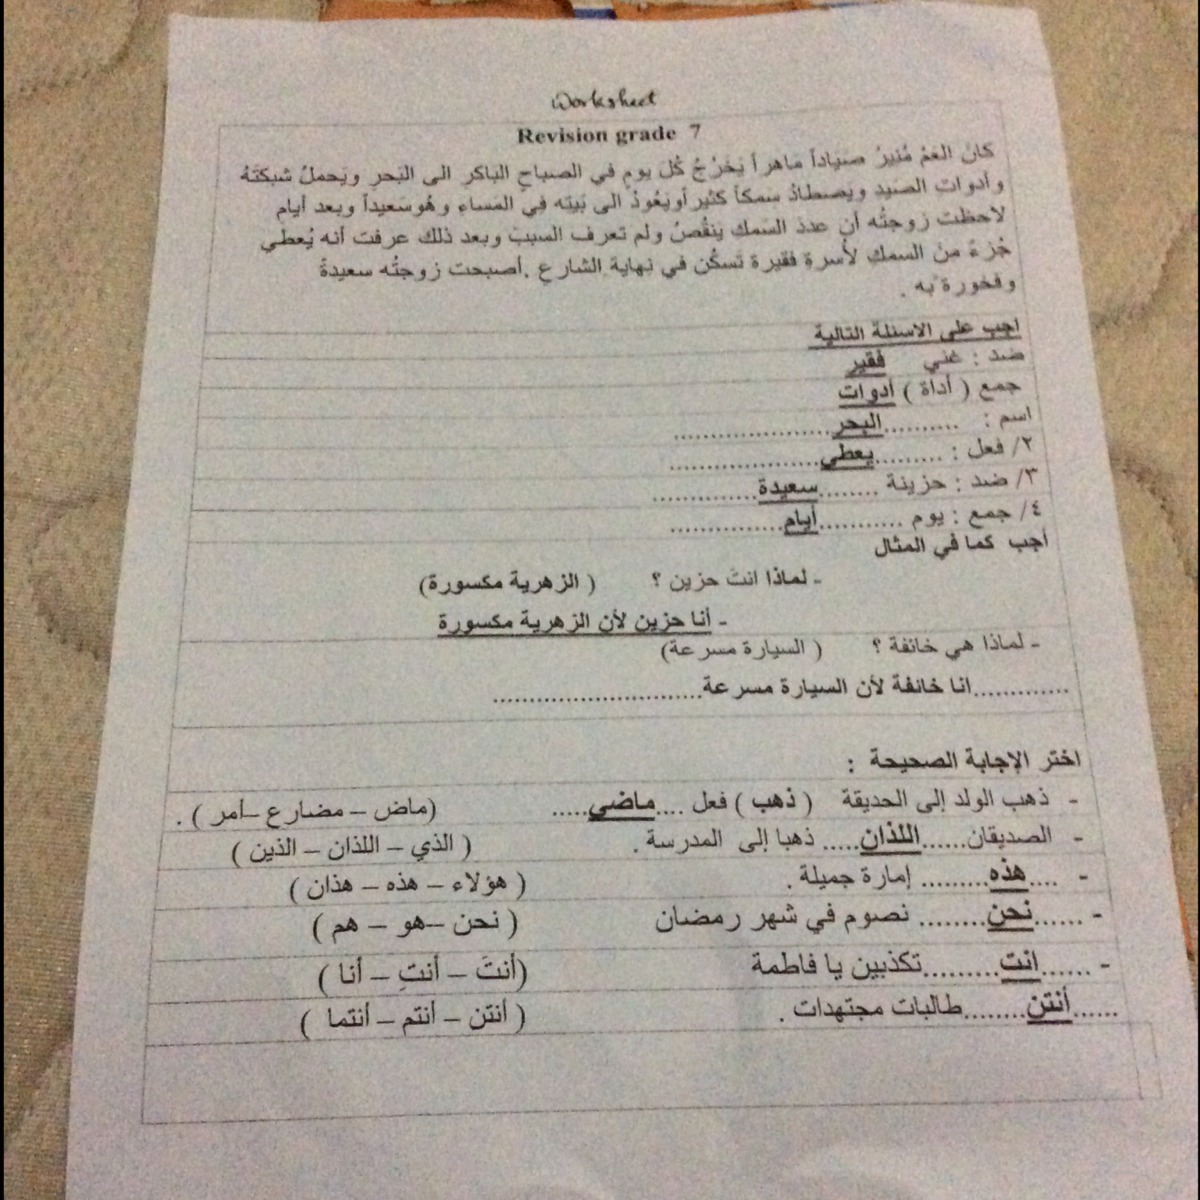 Worksheet
Revision grade 7
كانَ العَمُ مُنيرُ صَيَاداً مَاهراً يَخَرُجُ كُلَ يومٍ في الصباحِ البَاكر الى البَحرِ ويَحملُ شبكتَهُ
وأدوات الصَيدِ ويصطادُ سَمكاً كثيراًويَعُودُ الى بَيته في المَساءِ وهُوسَعيداً وبعد أيام
لاحظت زوجتُه أن عددَ السَمك يَنقُصُ ولم تعرف السببَ وبعد ذلك عرفت أنه يُعطي
جُزءً منَ السمكِ لأسرةٍ فقيرة تَسكُن في نهاية الشارع .أصبحت زوجتُه سعيدةً
وفخورة ًبه .
اجب على الاسئلة التالية
ضد : غني فقير
جمع ( أداة ) أدوات
اسم : ..........البحر......................
٢/ فعل : .........يعطي....................
٣/ ضد : حزينة ........سعيدة..............
٤/ جمع : يوم ...........أيام...............
أجب كما في المثال
- لماذا انتَ حزين ؟ ( الزهرية مكسورة)
- أنا حزين لأن الزهرية مكسورة
- لماذا هي خائفة ؟ ( السيارة مسرعة)
.............انا خائفة لأن السيارة مسرعة............................
اختر الإجابة الصحيحة :
- ذهب الولد إلى الحديقة ( ذهب ) فعل ....ماضي..... (ماض – مضارع –أمر ) .
- الصديقان......اللذان..... ذهبا إلى المدرسة . ( الذي – اللذان – الذين )
- ....هذه......... إمارة جميلة . ( هؤلاء – هذه – هذان )
- ......نحن........ نصوم في شهر رمضان ( نحن –هو – هم )
- ......انت.........تكذبين يا فاطمة (أنتَ – أنتِ – أنا )
......أنتن........طالبات مجتهدات . ( أنتن – أنتم – أنتما )